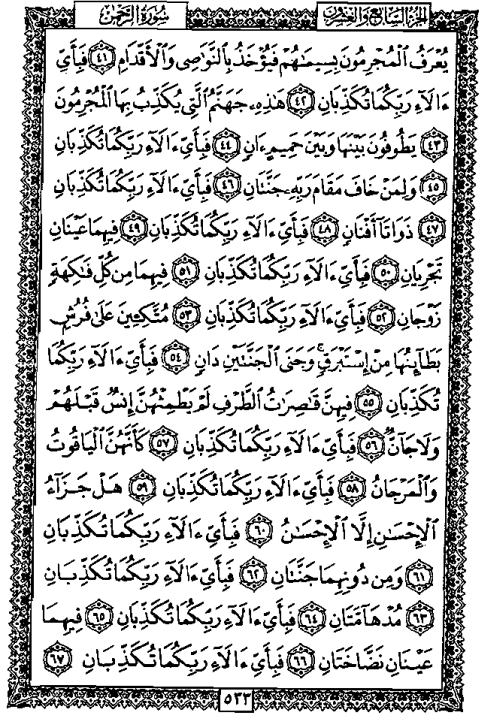 الجزء السابع والعشرون
سورة الرحمن
يُعْرَفُ الْمُجْرِمُونَ بِسِيمَاهُمْ فَيُؤْخَذُ بِالنَّوَاصِي وَالْأَقْدَامِ ٤١ فَبِأَيِّ
ءَالَآءِ رَبِّكُمَا تُكَذِّبَانِ ٤٢ هَٰذِهِ جَهَنَّمُ الَّتِي يُكَذِّبُ بِهَا الْمُجْرِمُونَ
٤٣ يَطُوفُونَ بَيْنَهَا وَبَيْنَ حَمِيمٍ ءَانٍ ٤٤ فَبِأَيِّ ءَالَآءِ رَبِّكُمَا تُكَذِّبَانِ
٤٥ وَلِمَنْ خَافَ مَقَامَ رَبِّهِ جَنَّتَانِ ٤٦ فَبِأَيِّ ءَالَآءِ رَبِّكُمَا تُكَذِّبَانِ
٤٧ ذَوَاتَآ أَفْنَانٍ ٤٨ فَبِأَيِّ ءَالَآءِ رَبِّكُمَا تُكَذِّبَانِ ٤٩ فِيهِمَا عَيْنَانِ
تَجْرِيَانِ ٥٠ فَبِأَيِّ ءَالَآءِ رَبِّكُمَا تُكَذِّبَانِ ٥١ فِيهِمَا مِن كُلِّ فَٰكِهَةٍ
زَوْجَانِ ٥٢ فَبِأَيِّ ءَالَآءِ رَبِّكُمَا تُكَذِّبَانِ ٥٣ مُتَّكِـِٔينَ عَلَىٰ فُرُشٍ
بَطَآئِنُهَا مِنْ إِسْتَبْرَقٍ ۚ وَجَنَى الْجَنَّتَيْنِ دَانٍ ٥٤ فَبِأَيِّ ءَالَآءِ رَبِّكُمَا
تُكَذِّبَانِ ٥٥ فِيهِنَّ قَٰصِرَٰتُ الطَّرْفِ لَمْ يَطْمِثْهُنَّ إِنسٌ قَبْلَهُمْ
وَلَا جَآنٌّ ٥٦ فَبِأَيِّ ءَالَآءِ رَبِّكُمَا تُكَذِّبَانِ ٥٧ كَأَنَّهُنَّ الْيَاقُوتُ
وَالْمَرْجَانُ ٥٨ فَبِأَيِّ ءَالَآءِ رَبِّكُمَا تُكَذِّبَانِ ٥٩ هَلْ جَزَآءُ
الْإِحْسَٰنِ إِلَّا الْإِحْسَٰنُ ٦٠ فَبِأَيِّ ءَالَآءِ رَبِّكُمَا تُكَذِّبَانِ
٦١ وَمِن دُونِهِمَا جَنَّتَانِ ٦٢ فَبِأَيِّ ءَالَآءِ رَبِّكُمَا تُكَذِّبَانِ
٦٣ مُدْهَآمَّتَانِ ٦٤ فَبِأَيِّ ءَالَآءِ رَبِّكُمَا تُكَذِّبَانِ ٦٥ فِيهِمَا
عَيْنَانِ نَضَّاخَتَانِ ٦٦ فَبِأَيِّ ءَالَآءِ رَبِّكُمَا تُكَذِّبَانِ ٦٧
٥٣٣